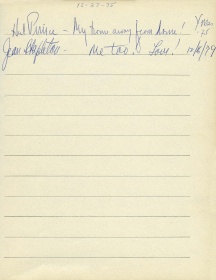 12-25-75
Hal Prince - My home away from home! Xmas 75
Jean Stapleton - Me too! Love! 10/6/79